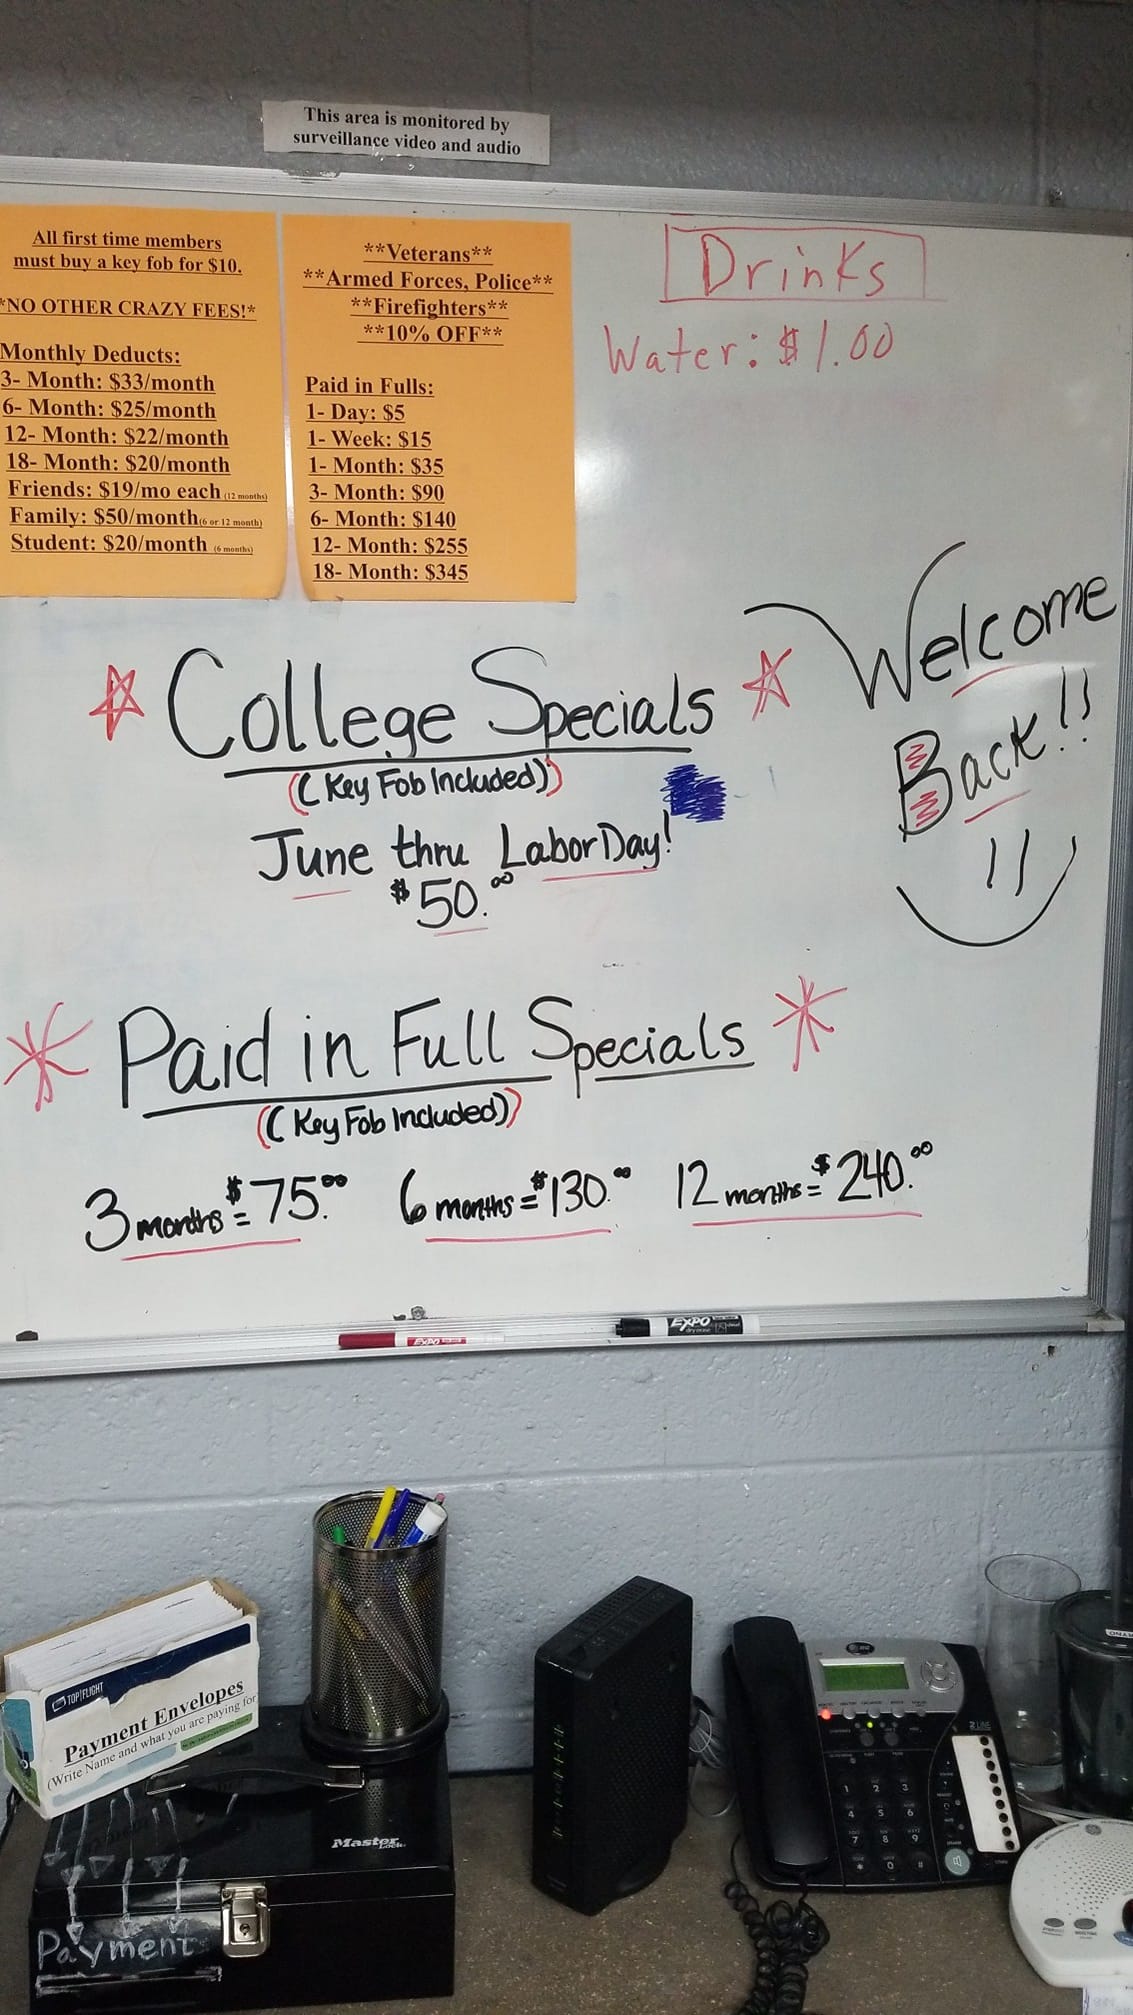 This area is monitored by
surveillance video and audio
All first time members
must buy a key fob for $10.
*NO OTHER CRAZY FEES!*
Monthly Deducts:
3- Month: $33/month
6- Month: $25/month
12- Month: $22/month
18- Month: $20/month
Friends: $19/mo each (12 months)
Family: $50/month(6 or 12 month)
Student: $20/month (6 months)
**Veterans**
**Armed Forces, Police**
**Firefighters**
**10% OFF**
Paid in Fulls:
1- Day: $5
1- Week: $15
1- Month: $35
3- Month: $90
6- Month: $140
12- Month: $255
18- Month: $345
Drinks
Water: $1.00
Welcome
Back!!
College Specials
(Key Fob Included)
June thru Labor Day!
$50.00
Paid in Full Specials
(Key Fob Included)
3 months = $75.00 6 months = $130.00 12 months = $240.00
EXPO
EXPO
TOP FLIGHT
Payment Envelopes
(Write Name and what you are paying for
Master Lock
Payment
at&t
2 LINE
1 2 3
4 5 6
7 8 9
* 0 #